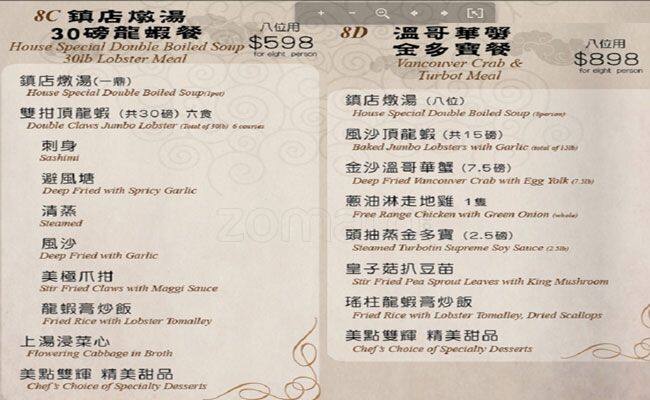 8C 鎮店燉湯
30磅龍蝦餐
八位用
$598
for eight person
House Special Double Boiled Soup
30lb Lobster Meal
鎮店燉湯(一鼎)
House Special Double Boiled Soup(1pot)
雙拑頂龍蝦 (共30磅) 六食
Double Claws Jumbo Lobster (Total of 30lb) 6 courses
刺身
Sashimi
避風塘
Deep Fried with Spricy Garlic
清蒸
Steamed
風沙
Deep Fried with Garlic
美極爪拑
Stir Fried Claws with Maggi Sauce
龍蝦膏炒飯
Fried Rice with Lobster Tomalley
上湯浸菜心
Flowering Cabbage in Broth
美點雙輝 精美甜品
Chef's Choice of Specialty Desserts
8D 溫哥華蟹
金多寶餐
八位用
$898
for eight person
Vancouver Crab &
Turbot Meal
鎮店燉湯 (八位)
House Special Double Boiled Soup (8person)
風沙頂龍蝦 (共15磅)
Baked Jumbo Lobsters with Garlic (total of 15lb)
金沙溫哥華蟹 (7.5磅)
Deep Fried Vancouver Crab with Egg Yolk (7.5lb)
蔥油淋走地雞 1隻
Free Range Chicken with Green Onion (whole)
頭抽蒸金多寶 (2.5磅)
Steamed Turbotin Supreme Soy Sauce (2.5lb)
皇子菇扒豆苗
Stir Fried Pea Sprout Leaves with King Mushroom
瑤柱龍蝦膏炒飯
Fried Rice with Lobster Tomalley, Dried Scallops
美點雙輝 精美甜品
Chef's Choice of Specialty Desserts